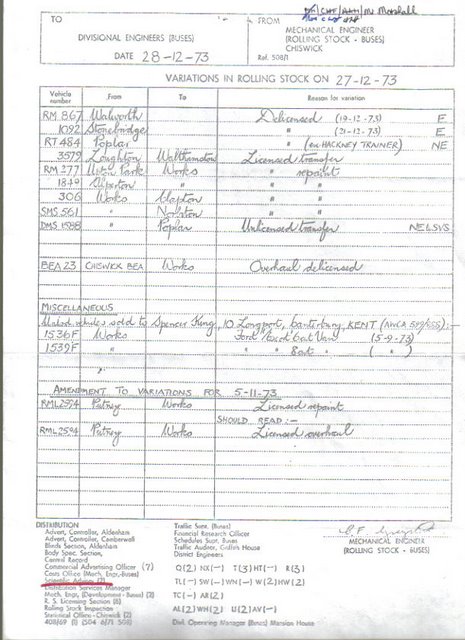 TO
DIVISIONAL ENGINEERS (BUSES)
DATE 28-12-73
FROM
MECHANICAL ENGINEER
(ROLLING STOCK - BUSES)
CHISWICK
Ref. 508/1
VARIATIONS IN ROLLING STOCK ON 27-12-73
Vehicle number From To Reason for variation
RM 867 Walworth Delicensed (19-12-73) E
1092 Stonebridge " (21-12-73) E
RT 484 Poplar " (ex HACKNEY TRAINER) NE
3579 Loughton Walthamstow Licensed transfer
RM 277 Upton Park Works " repaint
1840 Alperton " " "
306 Works Clapton " "
SMS 561 " Norbiton " "
DMS 1588 " Poplar Unlicensed transfer NELSVS
BEA 23 CHISWICK BEA Works Overhaul delicensed
MISCELLANEOUS
vehicles sold to Spencer King, 10 Longport, Canterbury, KENT
1536F Works Ford Van (5-9-73)
1539F " " " ( " )
AMENDMENT TO VARIATIONS FOR 5-11-73
RML2594 Putney Works Licensed repaint
SHOULD READ :-
RML2594 Putney Works Licensed overhaul
DISTRIBUTION
Advert, Controller, Aldenham
Advert, Controller, Camberwell
Blinds Section, Aldenham
Body Spec. Section,
Central Record
Commercial Advertising Officer (7)
Costs Office (Mech. Engr.-Buses)
Scientific Adviser (2)
Distribution Services Manager
Mech. Engr. (Development - Buses) (3)
R. S. Licensing Section (6)
Rolling Stock Inspection
Statistical Office - Chiswick (2)
408/69 (1) (504 6/71 508)
Traffic Supt. (Buses)
Financial Research Officer
Schedules Supt. Buses
Traffic Auditor, Griffith House
District Engineers
Q(2) NX(-) T(3) HT(-) R(3)
TL(-) SW(-) WN(-) W(2) HW(2)
TC(-) AR(2)
AL(2) WH(2) U(2) AV(-)
Divl. Operating Manager (Buses) Mansion House
MECHANICAL ENGINEER
(ROLLING STOCK - BUSES)